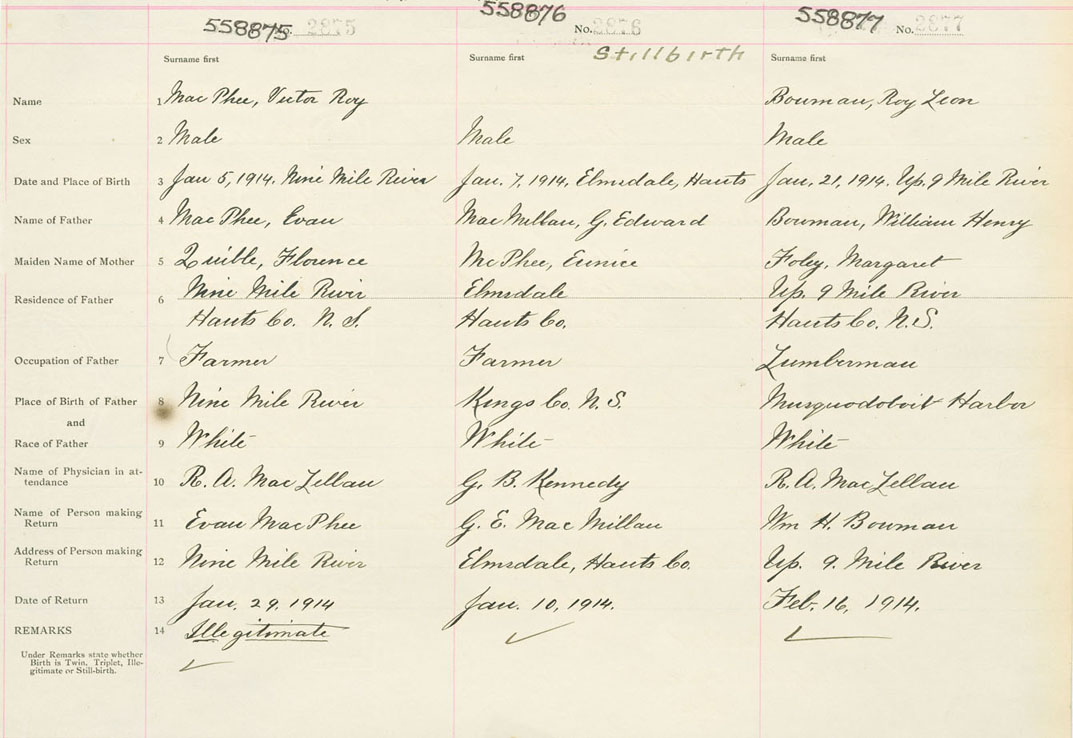 558875 No. 2875 558876 No. 2876 558877 No. 2877
Stillbirth
Surname first Surname first Surname first
Name 1 Mac Phee, Victor Roy Bowman, Roy Leon
Sex 2 Male Male Male
Date and Place of Birth 3 Jan 5, 1914. Nine Mile River Jan. 7, 1914, Elmsdale, Hants Jan. 21, 1914. Up. 9 Mile River
Name of Father 4 Mac Phee, Evan Mac Millan, G. Edward Bowman, William Henry
Maiden Name of Mother 5 Quible, Florence McPhee, Eunice Foley, Margaret
Residence of Father 6 Nine Mile River Elmsdale Up. 9 Mile River
Hants Co. N. S. Hants Co. Hants Co. N.S.
Occupation of Father 7 Farmer Farmer Lumberman
Place of Birth of Father 8 Nine Mile River Kings Co. N. S. Musquodoboit Harbor
and
Race of Father 9 White White White
Name of Physician in at-
tendance 10 R. A. MacLellan G. B. Kennedy R. A. MacLellan
Name of Person making
Return 11 Evan MacPhee G. E. MacMillan Wm H. Bowman
Address of Person making
Return 12 Nine Mile River Elmsdale, Hants Co. Up. 9. Mile River
Date of Return 13 Jan. 29, 1914 Jan. 10, 1914. Feb. 16, 1914.
REMARKS 14 Illegitimate
Under Remarks state whether
Birth is Twin, Triplet, Ille-
gitimate or Still-birth.